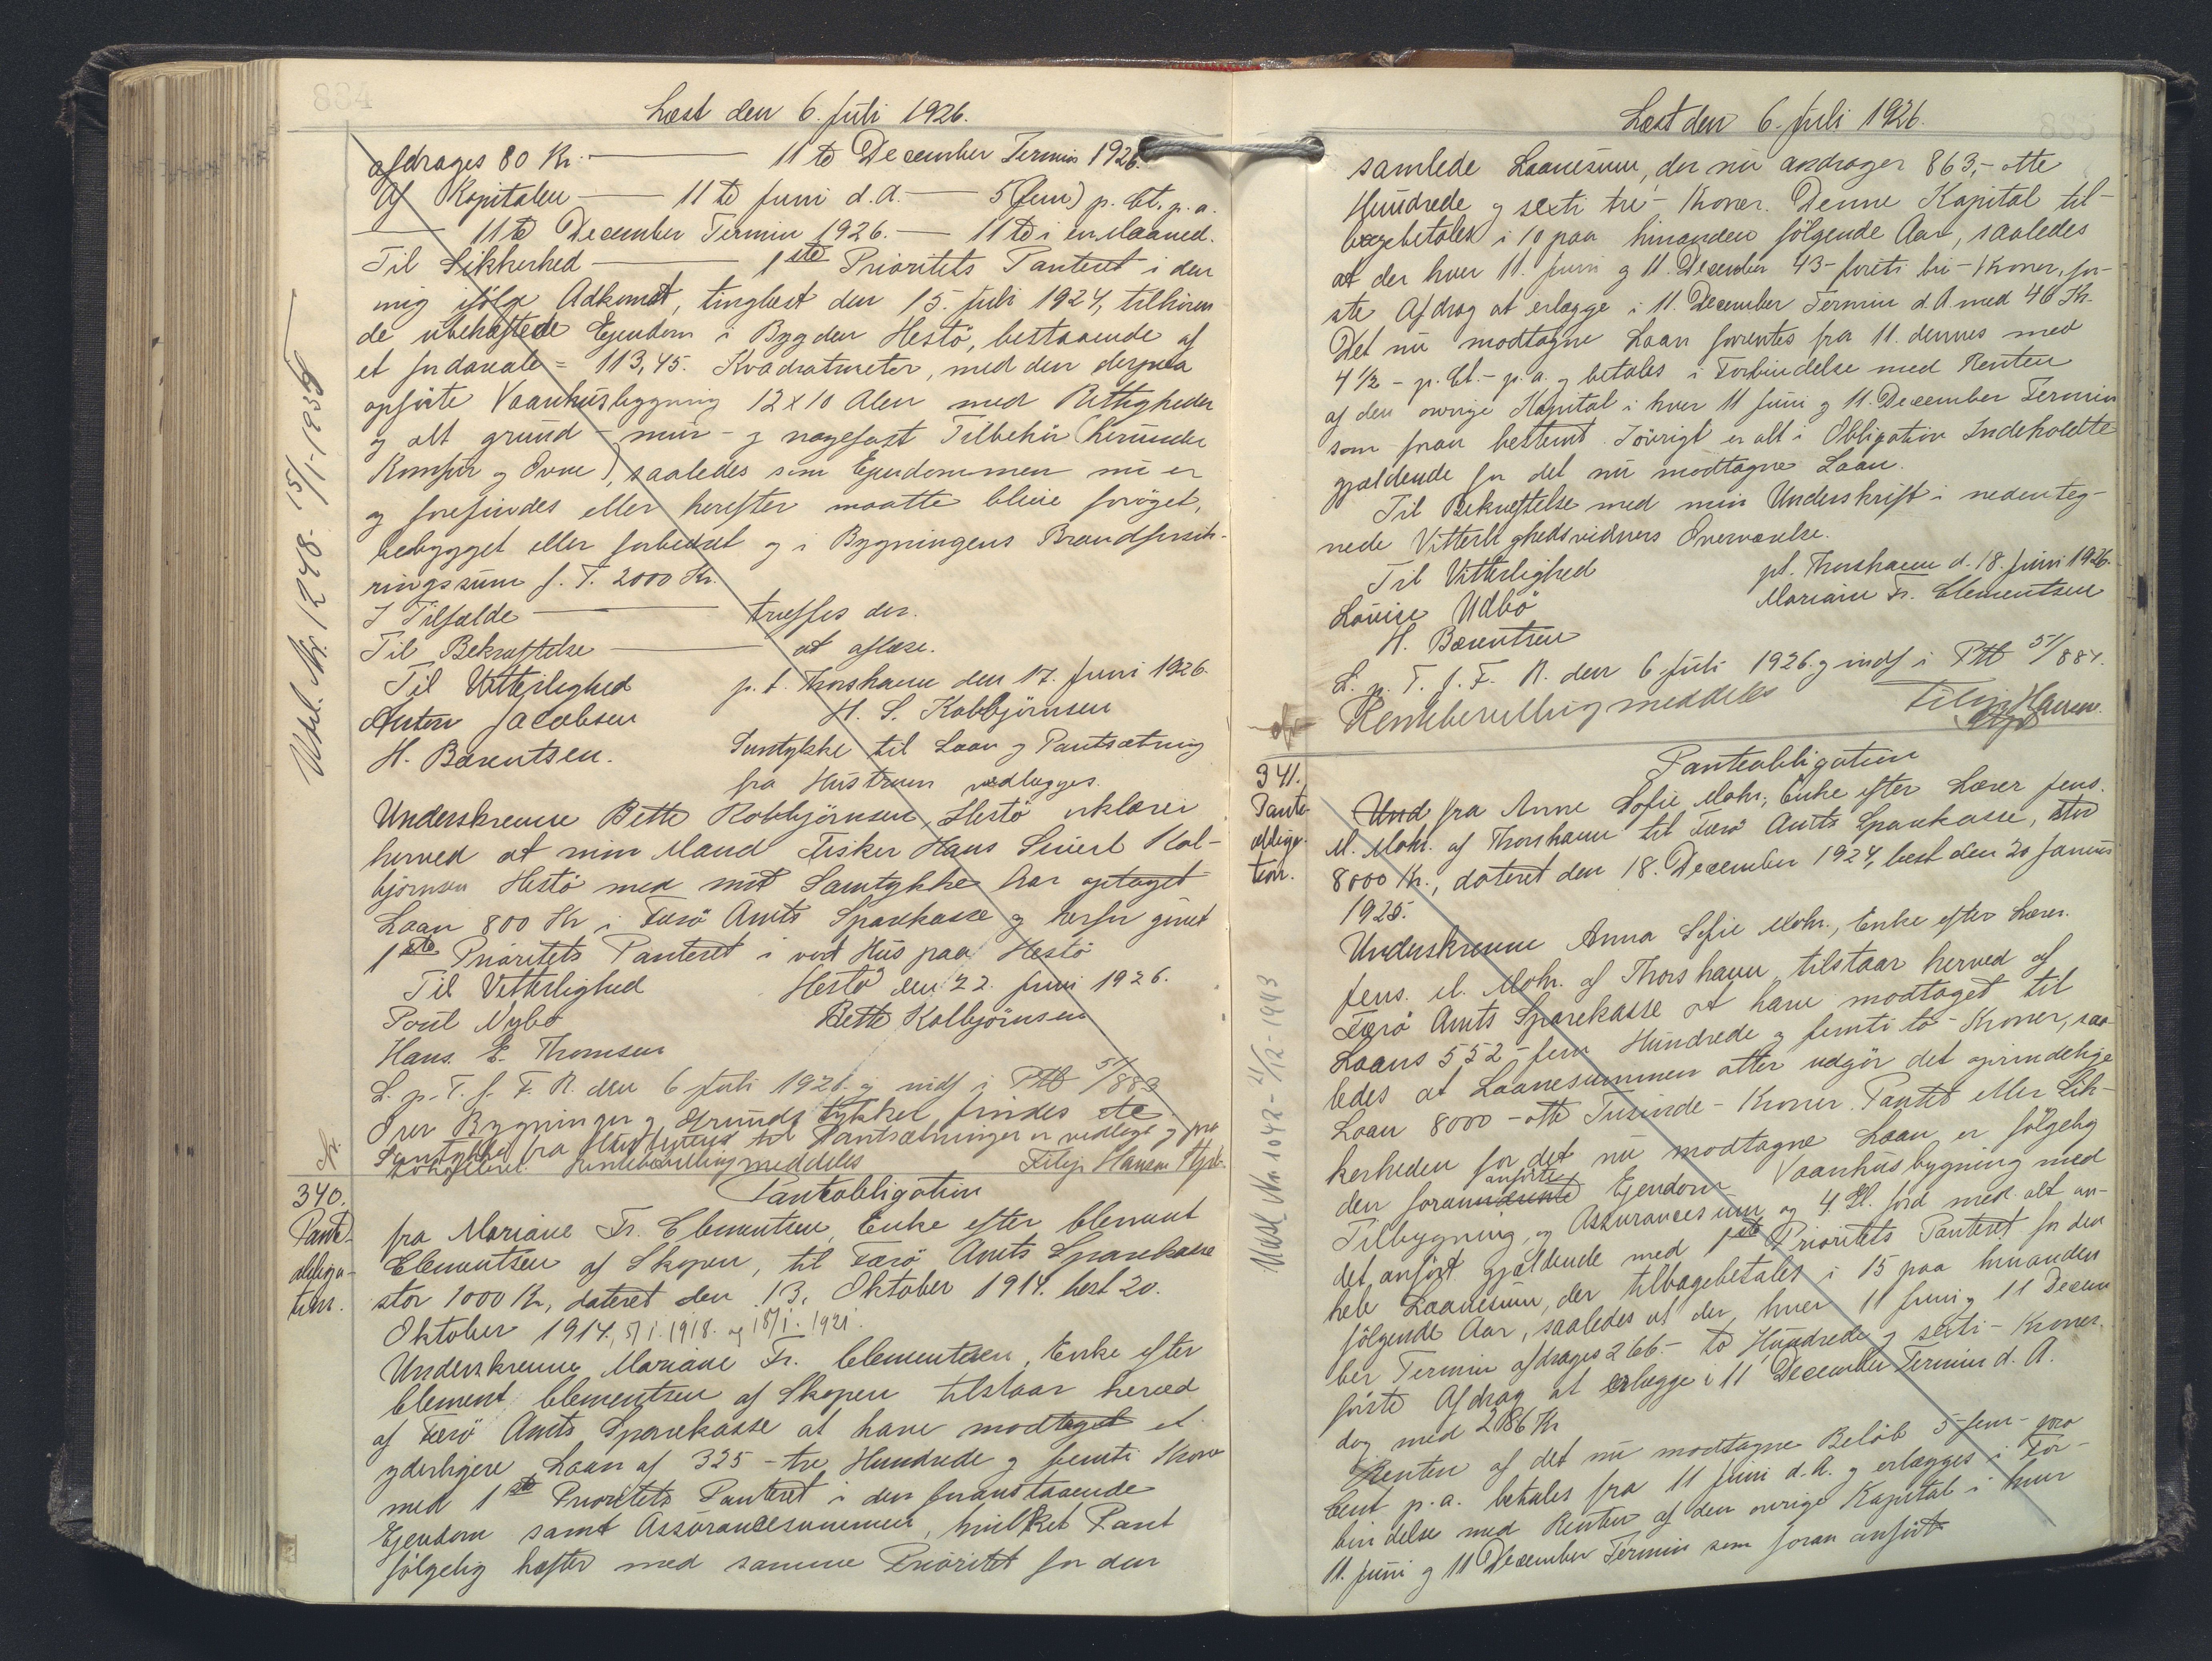 884
Læst den 6. Juli 1926.
afdrages 80 Kr. — 11te December Termin 1926.
Af Kapitalen — 11te Juni d.A. — 5 (fem) p. Ct. p. a.
— 11te December Termin 1926. — 11te i en Maaned.
Til Sikkerhed — 1ste Prioritets Panteret i den
mig ifølge Adkomst, tinglæst den 15. Juli 1924, tilhøren
de ubehæftede Ejendom i Bygden Hestø, bestaaende af
et Jordareale = 113,45. Kvadratmeter, med den derpaa
opførte Vaanhusbygning 12 x 10 Alen med Rettigheder
og alt grund - mur - og nagefast Tilbehør (herunder
Komfur og Ovne), saaledes som Ejendommen nu er
og forefindes eller herefter maatte blive forøget,
bebygget eller forbedret og i Bygningens Brandforsik-
ringssum f. T. 2000 Kr.
I Tilfælde — træffes der.
Til Bekræftelse — at aflæse.
Til Vitterlighed p. t. Thorshavn den 17. Juni 1926.
Anton Jacobsen H. S. Kolbjørnsen
H. Barentsen. Samtykke til Laan og Pantsætning
fra Hustruen vedlægges.
Underskrevne Bette Kolbjørnsen, Hestø erklærer
herved at min Mand Fisker Hans Sivert Kol-
bjørnsen Hestø med mit Samtykke har optaget
Laan 800 Kr i Færø Amts Sparekasse og herfor givet
1ste Prioritets Panteret i vort Hus paa Hestø
Til Vitterlighed Hestø den 22. Juni 1926.
Poul Nybo Bette Kolbjørnsen
Hans E. Thomsen
L. p. T. f. F. R. den 6 Juli 1926. og indf i PttB 51/883
Over Bygninger og Grundstykket findes
Samtykke fra Hustruens til Pantsætningen er vedlagt og
Rentebevilling meddeles Filip Hansen
Udsl. Nr. 1248. 15/1-1955
340.
Pant-
obliga-
tion.
Panteobligation
fra Mariane Fr. Clementsen, Enke efter Clement
Clementsen af Skopen, til Færø Amts Sparekasse
stor 1000 Kr, dateret den 13. Oktober 1914. læst 20.
Oktober 1914, 5/1. 1918. og 18/1. 1921.
Underskrevne Mariane Fr. Clementsen, Enke efter
Clement Clementsen af Skopen tilstaar herved
af Færø Amts Sparekasse at have modtaget et
yderligere Laan af 325 - tre Hundrede og femti Kroner
med 1ste Prioritets Panteret i den foranstaaende
Ejendom samt Assurancesummen, hvilket Pant
følgelig hæfter med samme Prioritet for den
Læst den 6. Juli 1926.
samlede Laanesum, der nu andrager 863,- otte
Hundrede og sexti tre - Kroner. Denne Kapital til-
bagebetales i 10 paa hinanden følgende Aar, saaledes
at der hver 11. Juni og 11. December 43 - forti tri - Kroner, før-
ste Afdrag at erlægge i 11. December Termin d. A. med 46 Kr.
Det nu modtagne Laan forrentes fra 11. dennes med
4 1/2 - p. Ct. - p. a. og betales i Forbindelse med Renten
af den øvrige Kapital i hver 11 Juni og 11. December Termin
som foran bestemt. Iøvrigt er alt i Obligation Indeholdte
gældende for det nu modtagne Laan.
Til Bekræftelse med min Underskrift i nedenteg-
nede Vitterlighedsvidners Overværelse.
Til Vitterlighed pt. Thorshavn d. 18. Juni 1926.
Louise Udbø Mariane Fr. Clementsen
H. Barentsen
L. p. T. f. F. R. den 6 Juli 1926. og indf i PttB 51/884.
Rentebevilling meddeles Filip Hansen.
341.
Pante-
obliga-
tion.
Panteobligation
Und fra Anne Sofie Mohr, Enke efter Lærer Jens.
M. Mohr. af Thorshavn til Færø Amts Sparekasse, stor
8000 Kr., dateret den 18. December 1924, læst den 20 Januar
1925.
Underskrevne Anna Sofie Mohr., Enke efter Lærer.
Jens. M. Mohr. af Thorshavn, tilstaar herved af
Færø Amts Sparekasse at have modtaget til
Laans 552 - fem Hundrede og femti to - Kroner, saa-
ledes at Laanesummen atter udgør det oprindelige
Laan 8000 - otte Tusinde - Kroner. Pantet eller Sik-
kerheden for det nu modtagne Laan er følgelig
den foran anførte Ejendom Vaanhusbygning med
Tilbygning, og Assurancesum og 4. Sk. Jord med alt an-
det, anført gjældende med 1ste Prioritets Panteret for den
hele Laanesum, der tilbagebetales i 15 paa hinanden
følgende Aar, saaledes at der hver 11 Juni og 11 Decem
ber Termin afdrages 266. - to Hundrede og sexti - Kroner.
første Afdrag at erlægge i 11 December Termin d. A.
dog med 286 Kr
Renten af det nu modtagne Beløb 5 - fem - pro
Cent p. a. betales fra 11 Juni d. A. og erlægges i For-
bindelse med Renten af den øvrige Kapital i hver
11. Juni og 11 December Termin som foran anført
Udsl Nr. 1042 - 21/12-1943